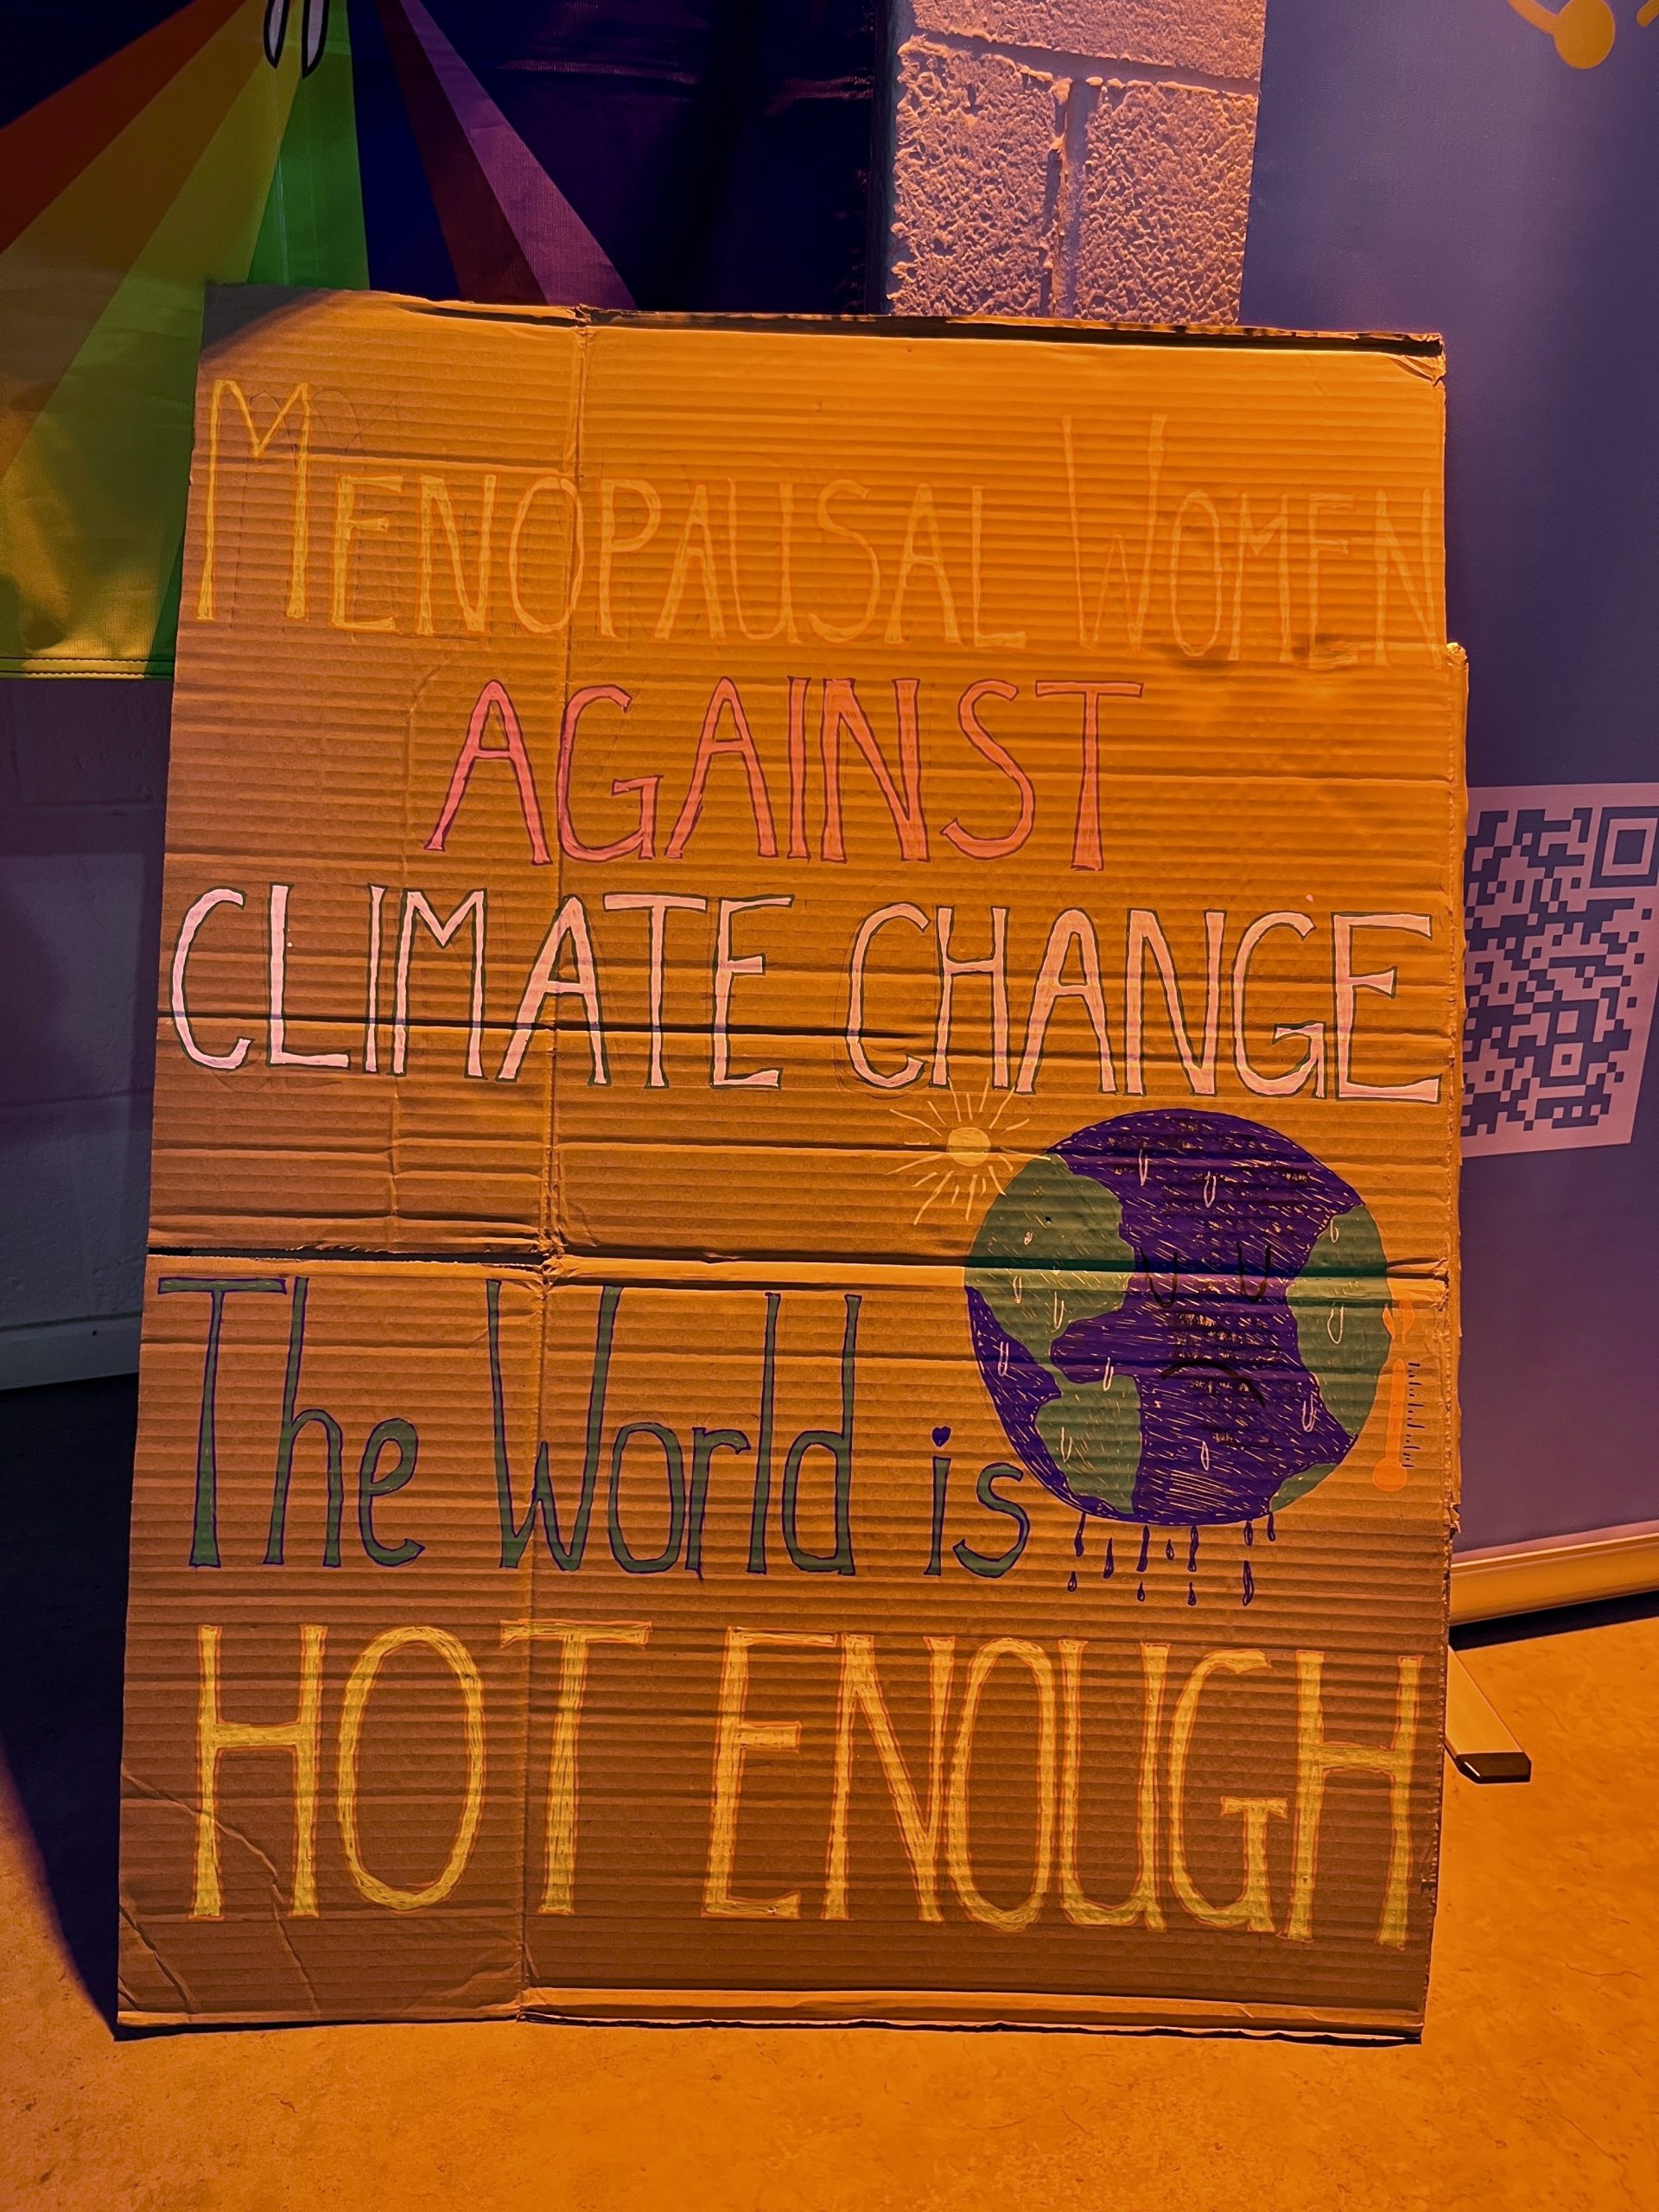 MENOPAUSAL WOMEN
AGAINST
CLIMATE CHANGE
The World is
HOT ENOUGH